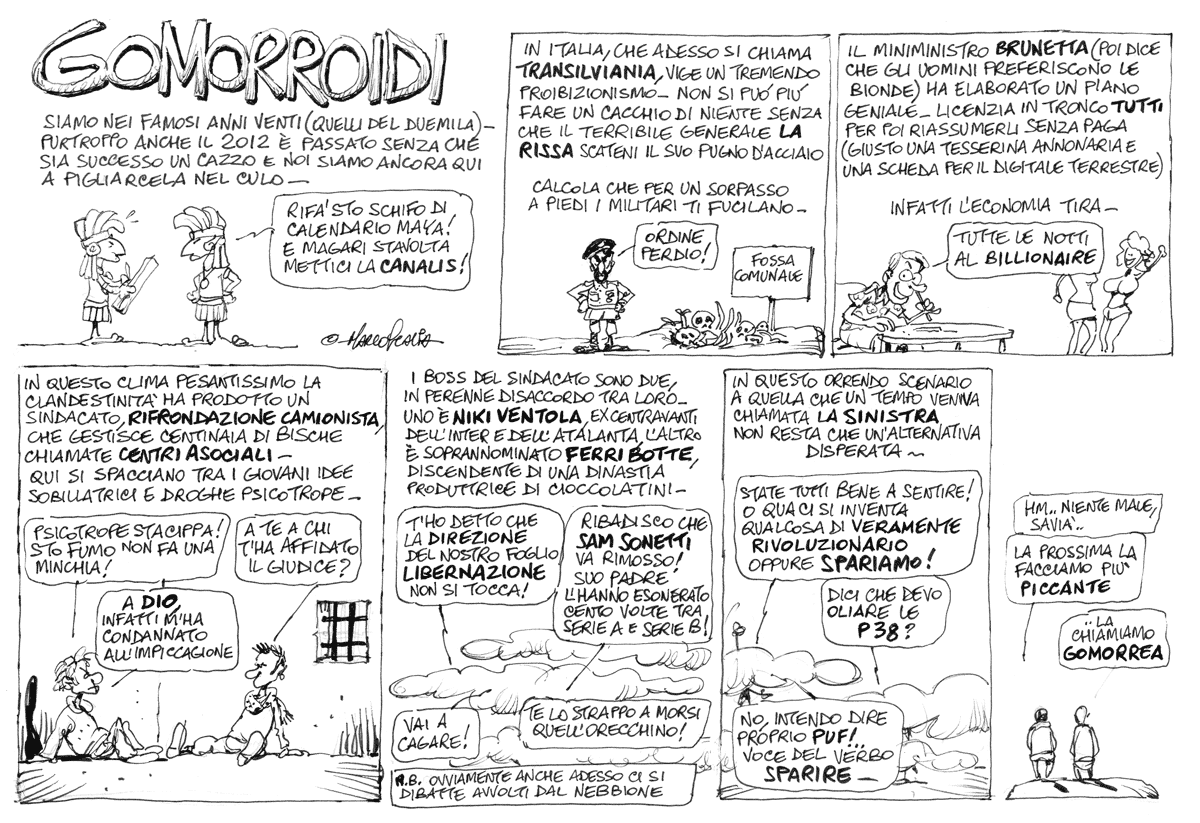 GOMORROIDI
SIAMO NEI FAMOSI ANNI VENTI (QUELLI DEL DUEMILA)–
PURTROPPO ANCHE IL 2012 È PASSATO SENZA CHE
SIA SUCCESSO UN CAZZO E NOI SIAMO ANCORA QUI
A PIGLIARCELA NEL CULO–
RIFA' STO SCHIFO DI
CALENDARIO MAYA!
E MAGARI STAVOLTA
METTICI LA CANALIS!
IN ITALIA, CHE ADESSO SI CHIAMA
TRANSILVIANIA, VIGE UN TREMENDO
PROIBIZIONISMO– NON SI PUÓ PIÚ
FARE UN CACCHIO DI NIENTE SENZA
CHE IL TERRIBILE GENERALE LA
RISSA SCATENI IL SUO PUGNO D'ACCIAIO
CALCOLA CHE PER UN SORPASSO
A PIEDI I MILITARI TI FUCILANO–
ORDINE
PERDIO!
FOSSA
COMUNALE
IL MINIMINISTRO BRUNETTA (POI DICE
CHE GLI UOMINI PREFERISCONO LE
BIONDE) HA ELABORATO UN PIANO
GENIALE– LICENZIA IN TRONCO TUTTI
PER POI RIASSUMERLI SENZA PAGA
(GIUSTO UNA TESSERINA ANNONARIA E
UNA SCHEDA PER IL DIGITALE TERRESTRE)
INFATTI L'ECONOMIA TIRA–
TUTTE LE NOTTI
AL BILLIONAIRE
IN QUESTO CLIMA PESANTISSIMO LA
CLANDESTINITA' HA PRODOTTO UN
SINDACATO, RIFRONDAZIONE CAMIONISTA,
CHE GESTISCE CENTINAIA DI BISCHE
CHIAMATE CENTRI ASOCIALI–
QUI SI SPACCIANO TRA I GIOVANI IDEE
SOBILLATRICI E DROGHE PSICOTROPE–
PSICOTROPE STACIPPA!
STO FUMO NON FA UNA
MINCHIA!
A TE A CHI
T'HA AFFIDATO
IL GIUDICE?
A DIO,
INFATTI M'HA
CONDANNATO
ALL'IMPICCAGIONE
I BOSS DEL SINDACATO SONO DUE,
IN PERENNE DISACCORDO TRA LORO–
UNO È NIKI VENTOLA, EX CENTRAVANTI
DELL'INTER E DELL'ATALANTA, L'ALTRO
È SOPRANNOMINATO FERRI BOTTE,
DISCENDENTE DI UNA DINASTIA
PRODUTTRICE DI CIOCCOLATINI–
T'HO DETTO CHE
LA DIREZIONE
DEL NOSTRO FOGLIO
LIBERNAZIONE
NON SI TOCCA!
RIBADISCO CHE
SAM SONETTI
VA RIMOSSO!
SUO PADRE
L'HANNO ESONERATO
CENTO VOLTE TRA
SERIE A E SERIE B!
VAI A
CAGARE!
TE LO STRAPPO A MORSI
QUELL'ORECCHINO!
N.B. OVVIAMENTE ANCHE ADESSO CI SI
DIBATTE AVVOLTI DAL NEBBIONE
IN QUESTO ORRENDO SCENARIO
A QUELLA CHE UN TEMPO VENIVA
CHIAMATA LA SINISTRA
NON RESTA CHE UN'ALTERNATIVA
DISPERATA–
STATE TUTTI BENE A SENTIRE!
O QUA CI SI INVENTA
QUALCOSA DI VERAMENTE
RIVOLUZIONARIO
OPPURE SPARIAMO!
DICI CHE DEVO
OLIARE LE
P38?
NO, INTENDO DIRE
PROPRIO PUF!
VOCE DEL VERBO
SPARIRE–
HM.. NIENTE MALE,
SAVIA'..
LA PROSSIMA LA
FACCIAMO PIU'
PICCANTE
..LA
CHIAMIAMO
GOMORREA